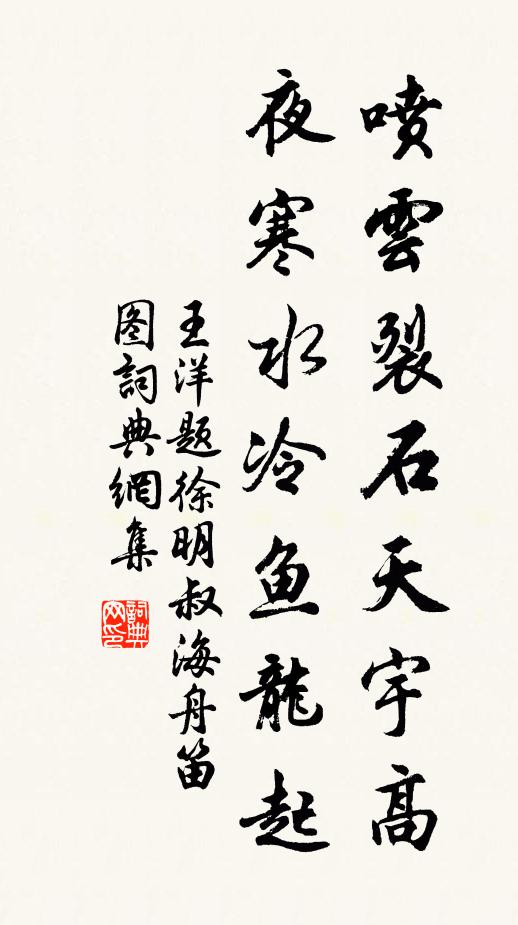 喷雲裂石天宇高
夜寒水冷鱼龍起
王洋题徐明叔海舟笛
图詞典網集
詞典网印